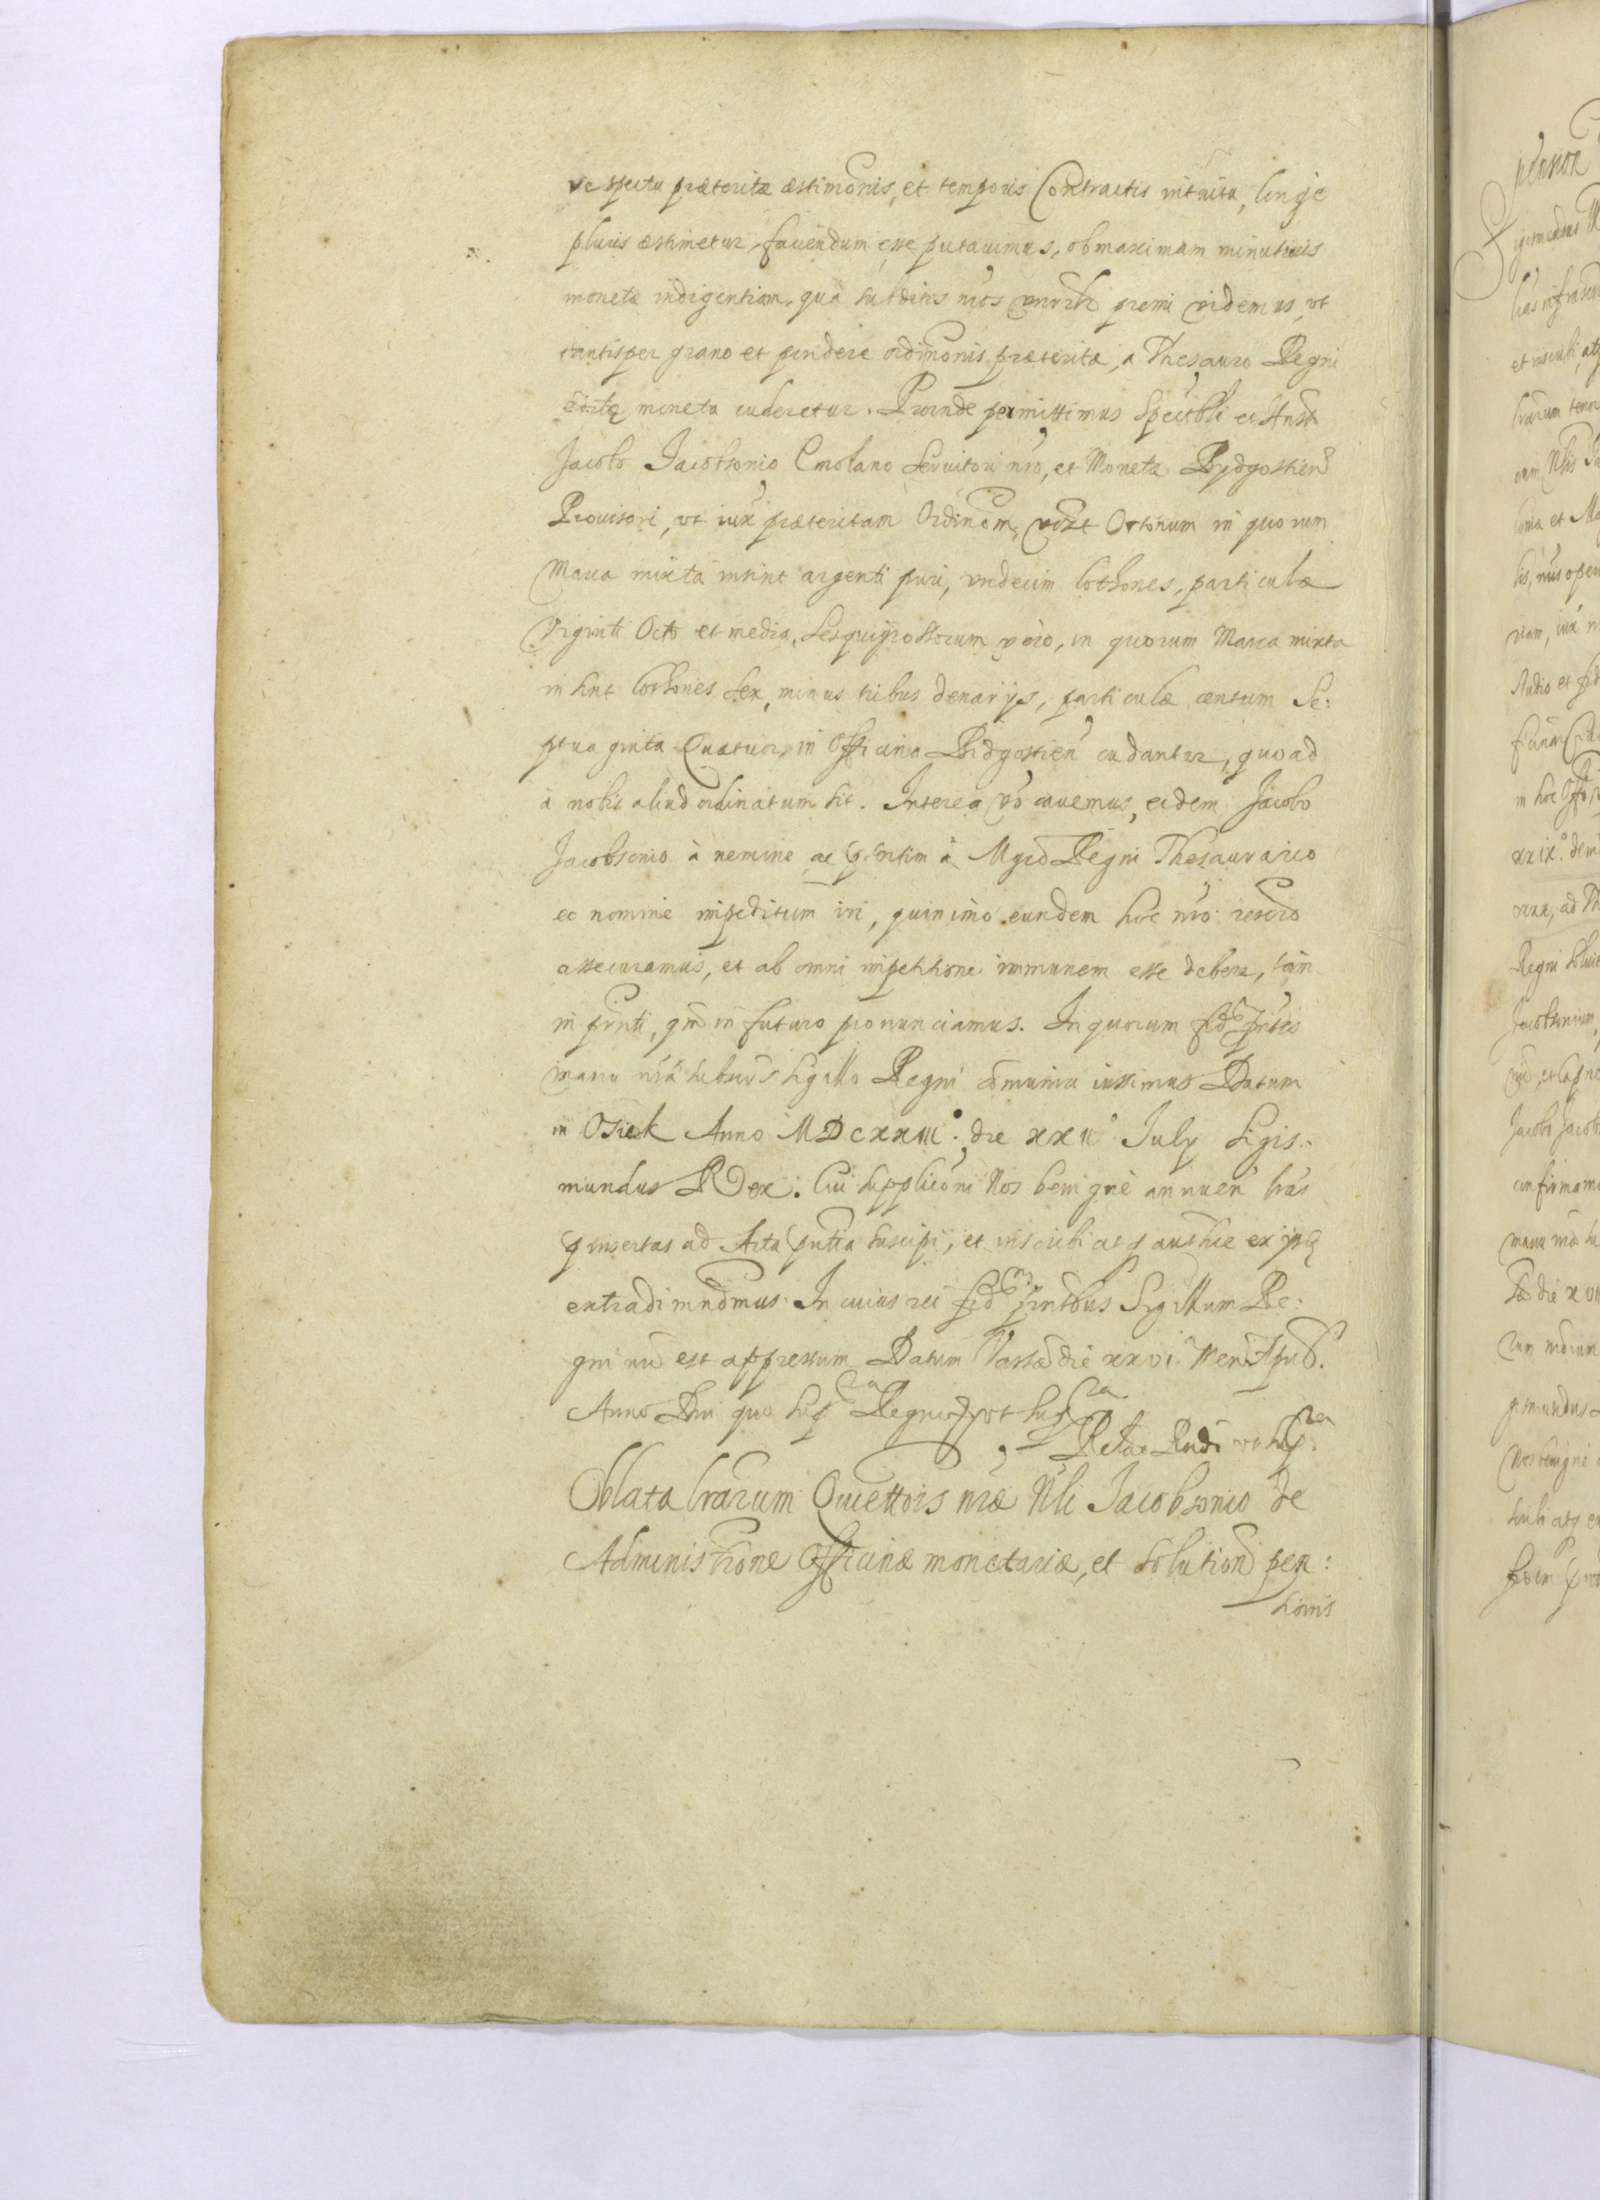 respectu præteritæ æstimonis, et temporis Contractis intuitu, longe
pluris æstimetur, fauendum esse putauimus, ob maximam minutioris
monetæ indigentiam, quâ subditis nros premi videmus, vt
tantisper grano et pondere ordinonis præteritæ, a Thesauro Regni
moneta cuderetur. Proinde permissimus Spectbli et
Jacobo Jacobsonio Emolano Seruitori nro, et Monetæ Bydgostien
Prouisori, vt iux præteritam Ordinem, Ortonum in quorum
Marca mixta insint argenti puri, vndecim lothones, particulæ
Viginti Octo et media, Sesquigrossorum vero, in quorum Marca mixta
insint lothones Sex, minus tribus denarijs, particulæ centum Se:
ptuaginta Quatuor, in Officina Bidgostien cudantur, quoad
à nobis aliud ordinatum sit. Interea vo cauemus, eidem Jacobo
Jacobsonio à nemine ac à Mgco Regni Thesaurario
eo nomine impeditum iri, quinimo eundem hoc nro rescro
assecuramus, et ab omni impetitione immunem esse debere, tam
in prnti, qm in futuro pronunciamus. In quorum fidem prntes
manu nra subscrs sigillo Regni comuniri iussimus Datum
in Osiek Anno MDCXXIII. die XXII July Sigis:
mundus Rex. Cui supplicōni Nos benignè annuen lras
prinsertas ad Acta prntia suscipi, et inscribi atq authce ex ijsq
extradi mndmus. In cuius rei fidem prntibus Sigillum Re:
gni nri est appressum Datum Varsæ die XXVI Men
Anno Dni quo sup Regnorq vt supra
Retae Rudi vt supra
Oblata lrarum Quiettois nræ Nbli Jacobsonio de
Administrione Officinæ monetariæ, et solutione pen:
sionis